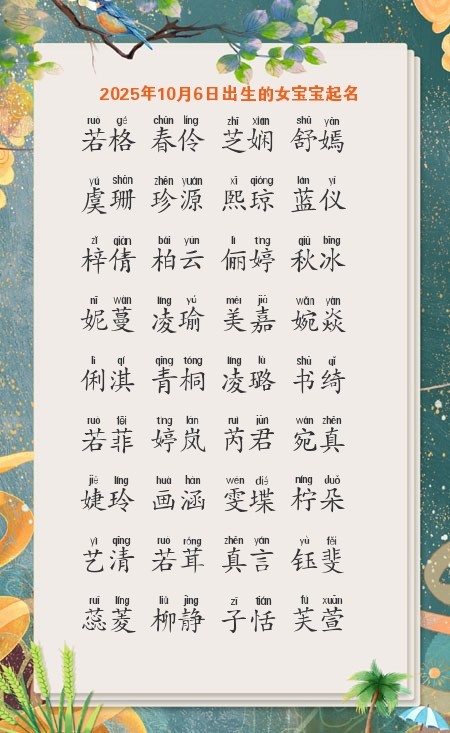 2025年10月6日出生的女宝宝起名
ruò gé chūn líng zhī xián shū yān
若格 春伶 芝娴 舒嫣
yú shān zhēn yuán xī qióng lán yí
虞珊 珍源 熙琼 蓝仪
zǐ qiàn bái yún lì tíng qiū bīng
梓倩 柏云 俪婷 秋冰
nī wàn líng yú měi jiā wǎn yàn
妮蔓 凌瑜 美嘉 婉焱
lì qí qīng tóng líng lù shū qǐ
俐淇 青桐 凌璐 书绮
ruò fēi tíng lán ruì jūn wǎn zhēn
若菲 婷岚 芮君 宛真
jié líng huà hán wén dié níng duǒ
婕玲 画涵 雯堞 柠朵
yì qīng ruò róng zhēn yán yù fěi
艺清 若茸 真言 钰斐
ruǐ líng liǔ jìng zǐ tián fú xuān
蕊菱 柳静 子恬 芙萱